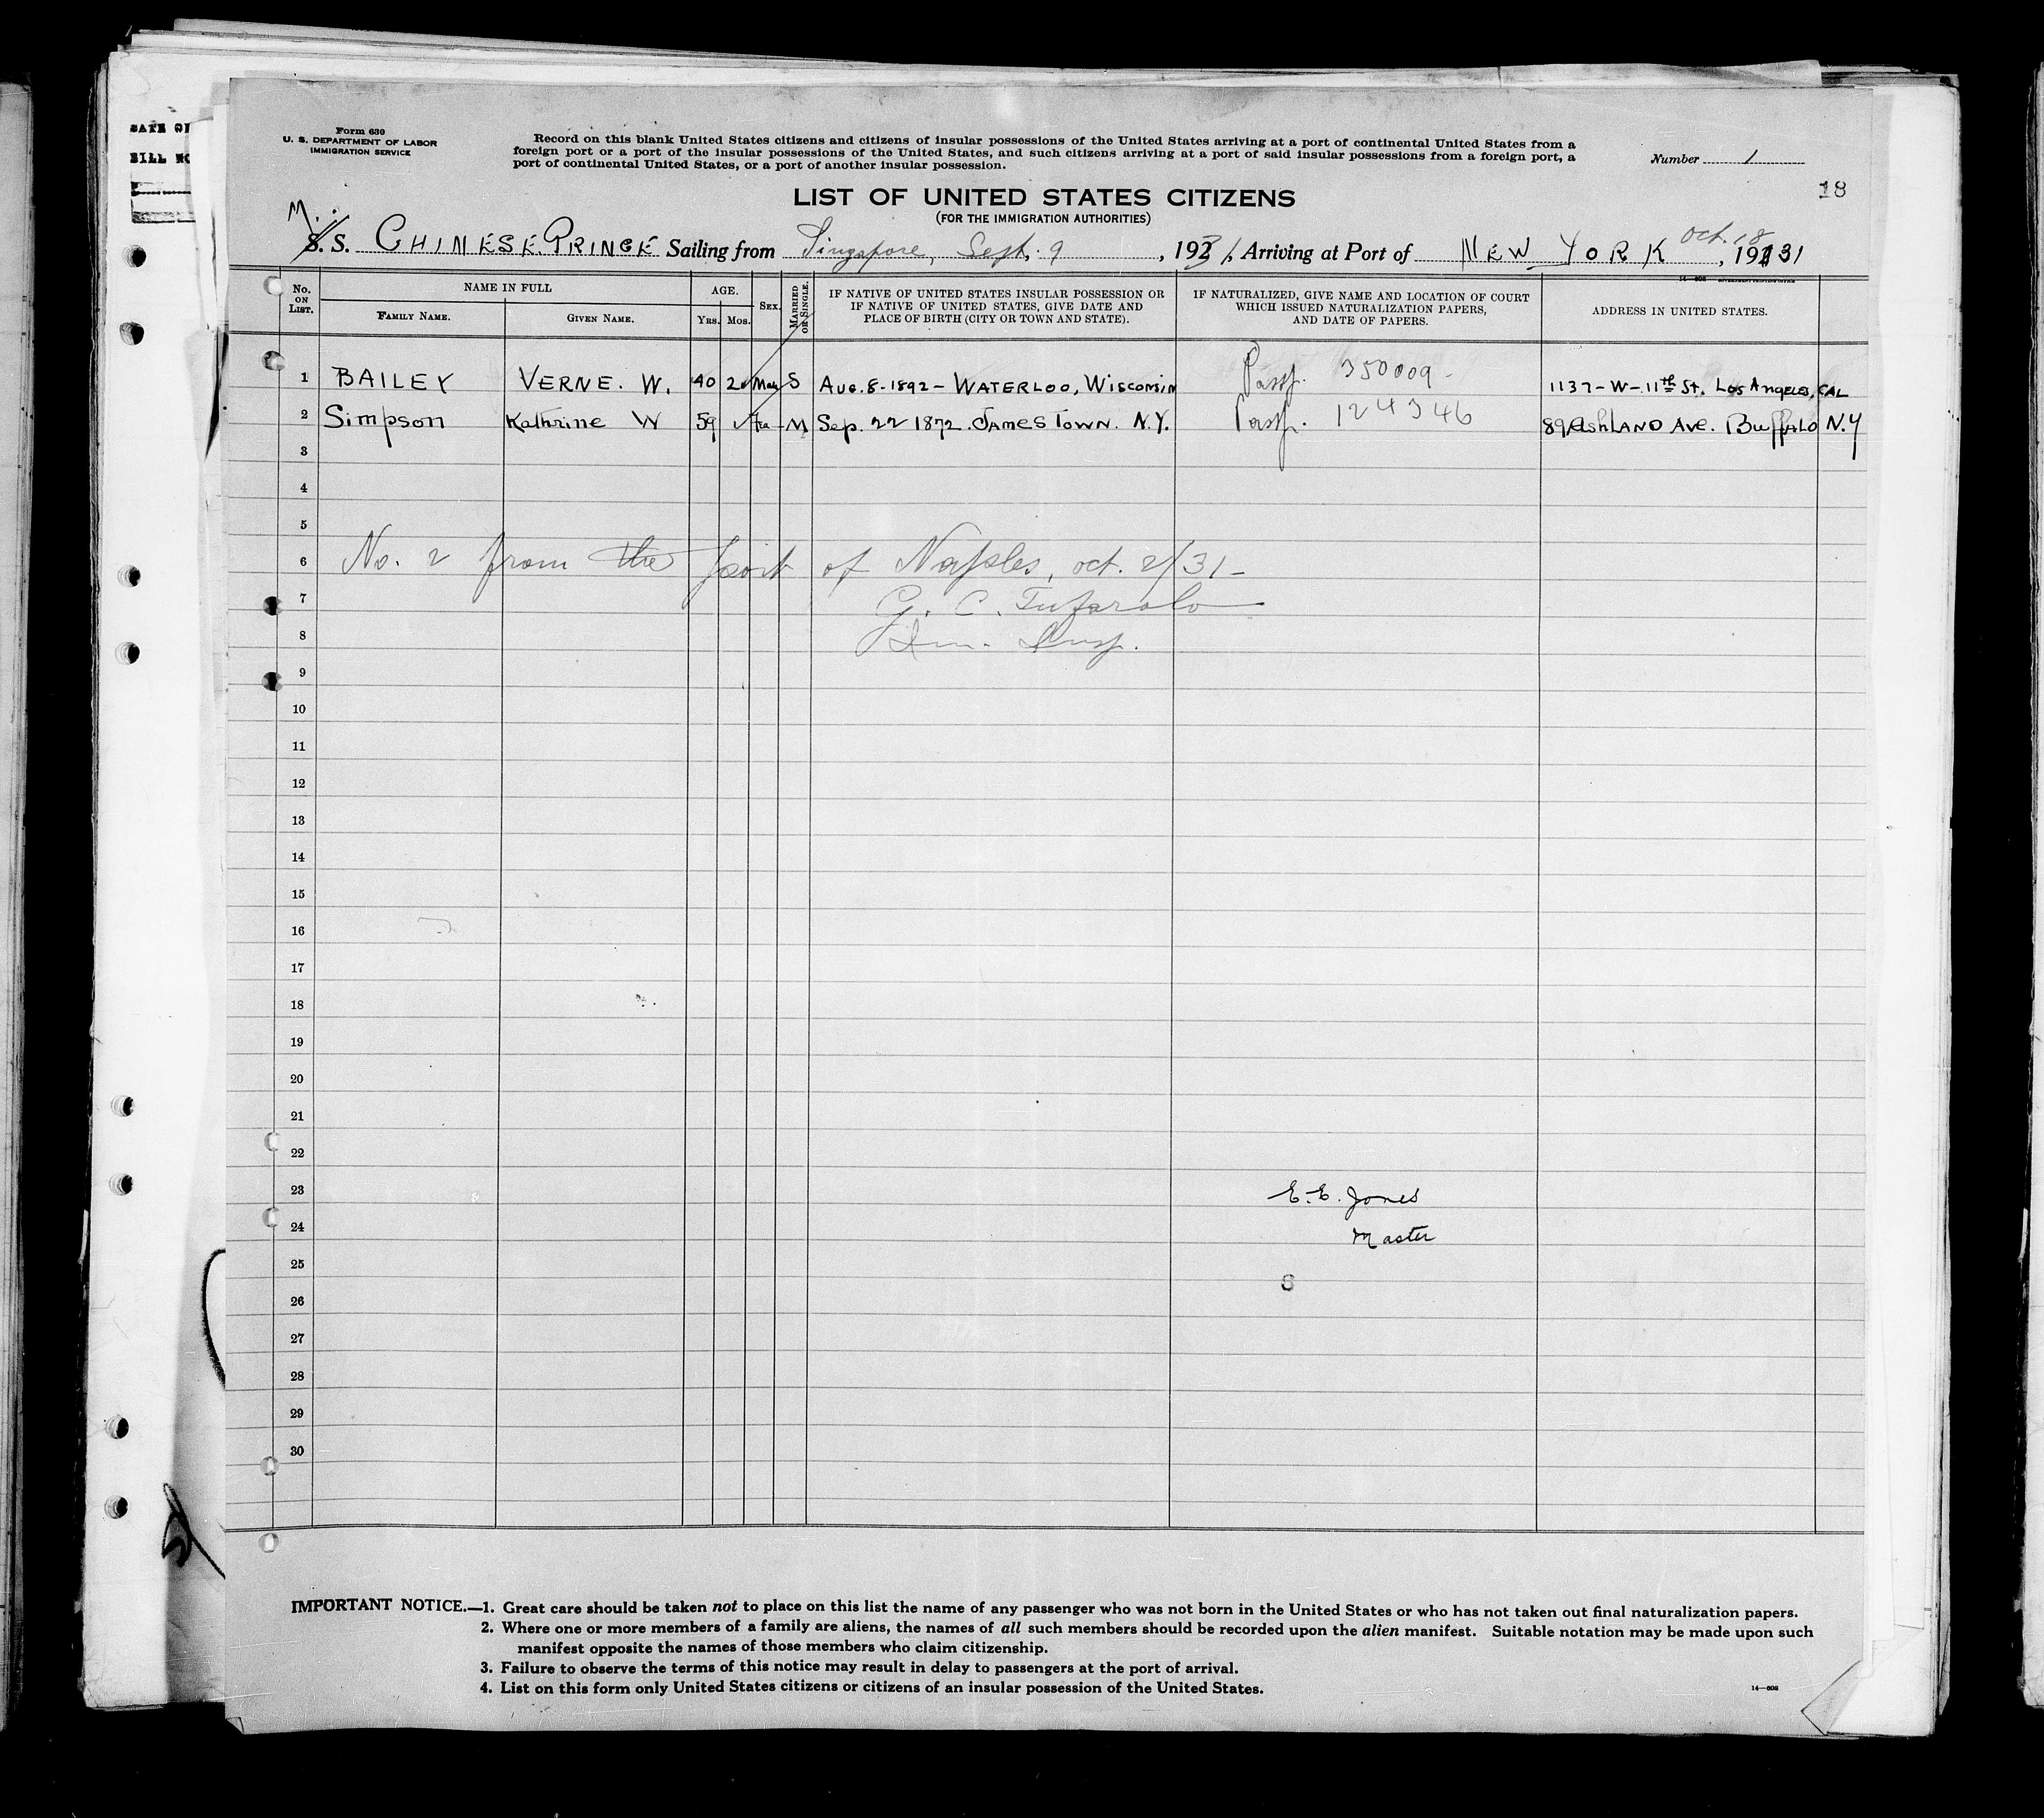 DATE OF
BILL NO
Form 630
U. S. DEPARTMENT OF LABOR
IMMIGRATION SERVICE
Record on this blank United States citizens and citizens of insular possessions of the United States arriving at a port of continental United States from a
foreign port or a port of the insular possessions of the United States, and such citizens arriving at a port of said insular possessions from a foreign port, a
port of continental United States, or a port of another insular possession.
Number 1
18
LIST OF UNITED STATES CITIZENS
(FOR THE IMMIGRATION AUTHORITIES)
M. S. CHINESE PRINCE Sailing from Singapore, Sept. 9, 1931, Arriving at Port of NEW YORK Oct. 18, 1931
14—608 GOVERNMENT PRINTING OFFICE
No. ON LIST.
NAME IN FULL
FAMILY NAME.
GIVEN NAME.
AGE.
Yrs. Mos.
SEX.
MARRIED OR SINGLE.
IF NATIVE OF UNITED STATES INSULAR POSSESSION OR
IF NATIVE OF UNITED STATES, GIVE DATE AND
PLACE OF BIRTH (CITY OR TOWN AND STATE).
IF NATURALIZED, GIVE NAME AND LOCATION OF COURT
WHICH ISSUED NATURALIZATION PAPERS,
AND DATE OF PAPERS.
ADDRESS IN UNITED STATES.
1 BAILEY VERNE. W. 40 2 S AUG. 8-1892- WATERLOO, WISCONSIN Passp. 350009- 1137-W-11th ST. LOS ANGELES, CAL
2 Simpson Kathrine W 59 Fe M Sep. 22 1872. JAMESTOWN. N.Y. Passp. 124346 89 AshLAND Ave. BuffALO N.Y
3
4
5
6 No. 2 from the port of Naples, oct. 2/31-
7 G. C. Tufarolo
8 Im. Insp.
9
10
11
12
13
14
15
16
17
18
19
20
21
22
23 E. E. Jones
24 Master
25
26
27
28
29
30
IMPORTANT NOTICE.—1. Great care should be taken not to place on this list the name of any passenger who was not born in the United States or who has not taken out final naturalization papers.
2. Where one or more members of a family are aliens, the names of all such members should be recorded upon the alien manifest. Suitable notation may be made upon such
manifest opposite the names of those members who claim citizenship.
3. Failure to observe the terms of this notice may result in delay to passengers at the port of arrival.
4. List on this form only United States citizens or citizens of an insular possession of the United States.
14—608